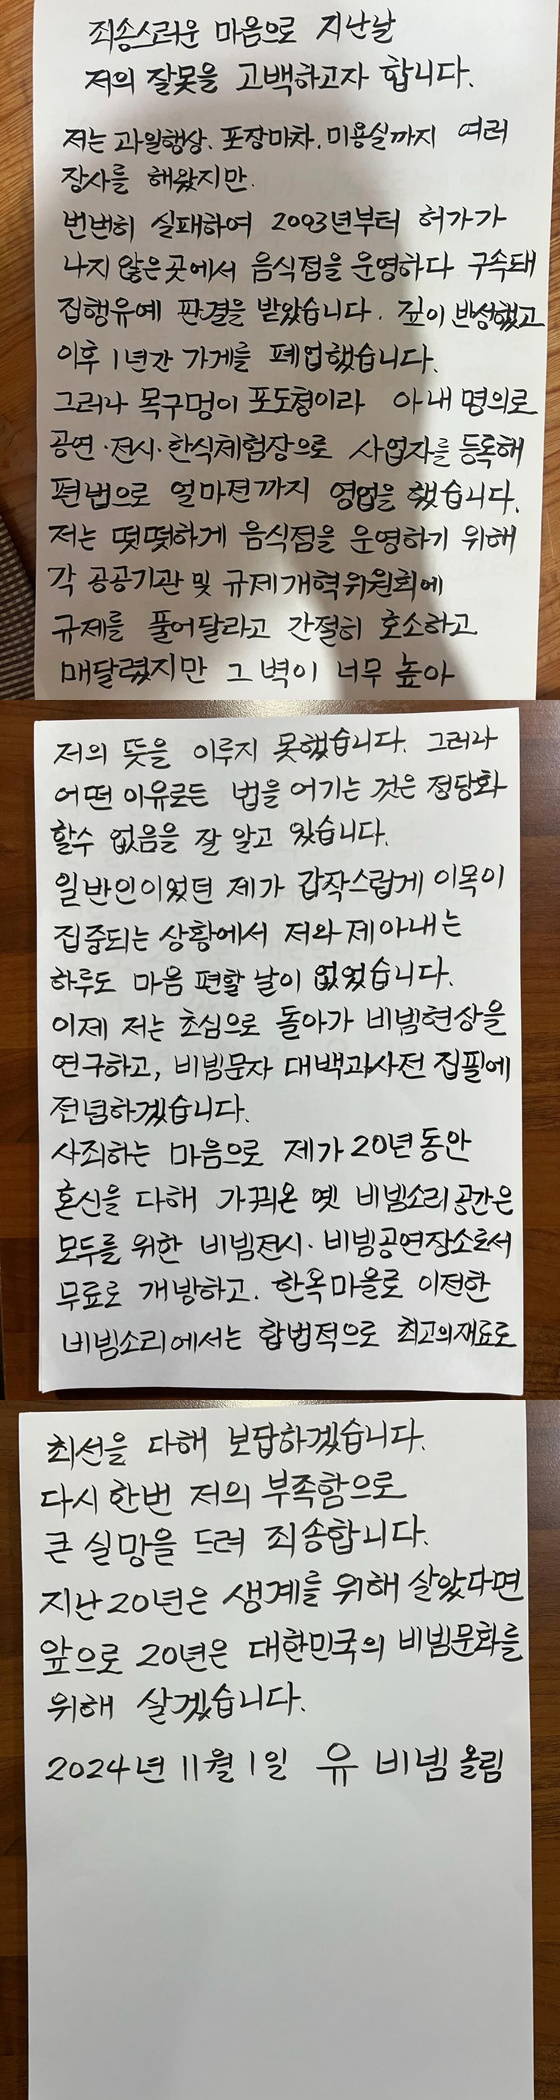 죄송스러운 마음으로 지난날
저의 잘못을 고백하고자 합니다.
저는 과일행상, 포장마차, 미용실까지 여러
장사를 해왔지만,
번번히 실패하여 2003년부터 허가가
나지 않은 곳에서 음식점을 운영하다 구속돼
집행유예 판결을 받았습니다. 깊이 반성했고
이후 1년간 가게를 폐업했습니다.
그러나 목구멍이 포도청이라 아내 명의로
공연·전시·한식체험장으로 사업자를 등록해
편법으로 얼마전까지 영업을 했습니다.
저는 떳떳하게 음식점을 운영하기 위해
각 공공기관 및 규제개혁위원회에
규제를 풀어달라고 간절히 호소하고
매달렸지만 그 벽이 너무 높아
저의 뜻을 이루지 못했습니다. 그러나
어떤 이유로든 법을 어기는 것은 정당화
할수 없음을 잘 알고 있습니다.
일반인이었던 제가 갑작스럽게 이목이
집중되는 상황에서 저와 제아내는
하루도 마음 편할 날이 없었습니다.
이제 저는 초심으로 돌아가 비빔현상을
연구하고, 비빔문자 대백과사전 집필에
전념하겠습니다.
사죄하는 마음으로 제가 20년 동안
혼신을 다해 가꿔온 옛 비빔소리 공간은
모두를 위한 비빔전시·비빔공연장소로서
무료로 개방하고, 한옥마을로 이전한
비빔소리에서는 합법적으로 최고의재료로
최선을 다해 보답하겠습니다.
다시 한번 저의 부족함으로
큰 실망을 드려 죄송합니다.
지난 20년은 생계를 위해 살았다면
앞으로 20년은 대한민국의 비빔문화를
위해 살겠습니다.
2024년 11월 1일 유 비빔 올림